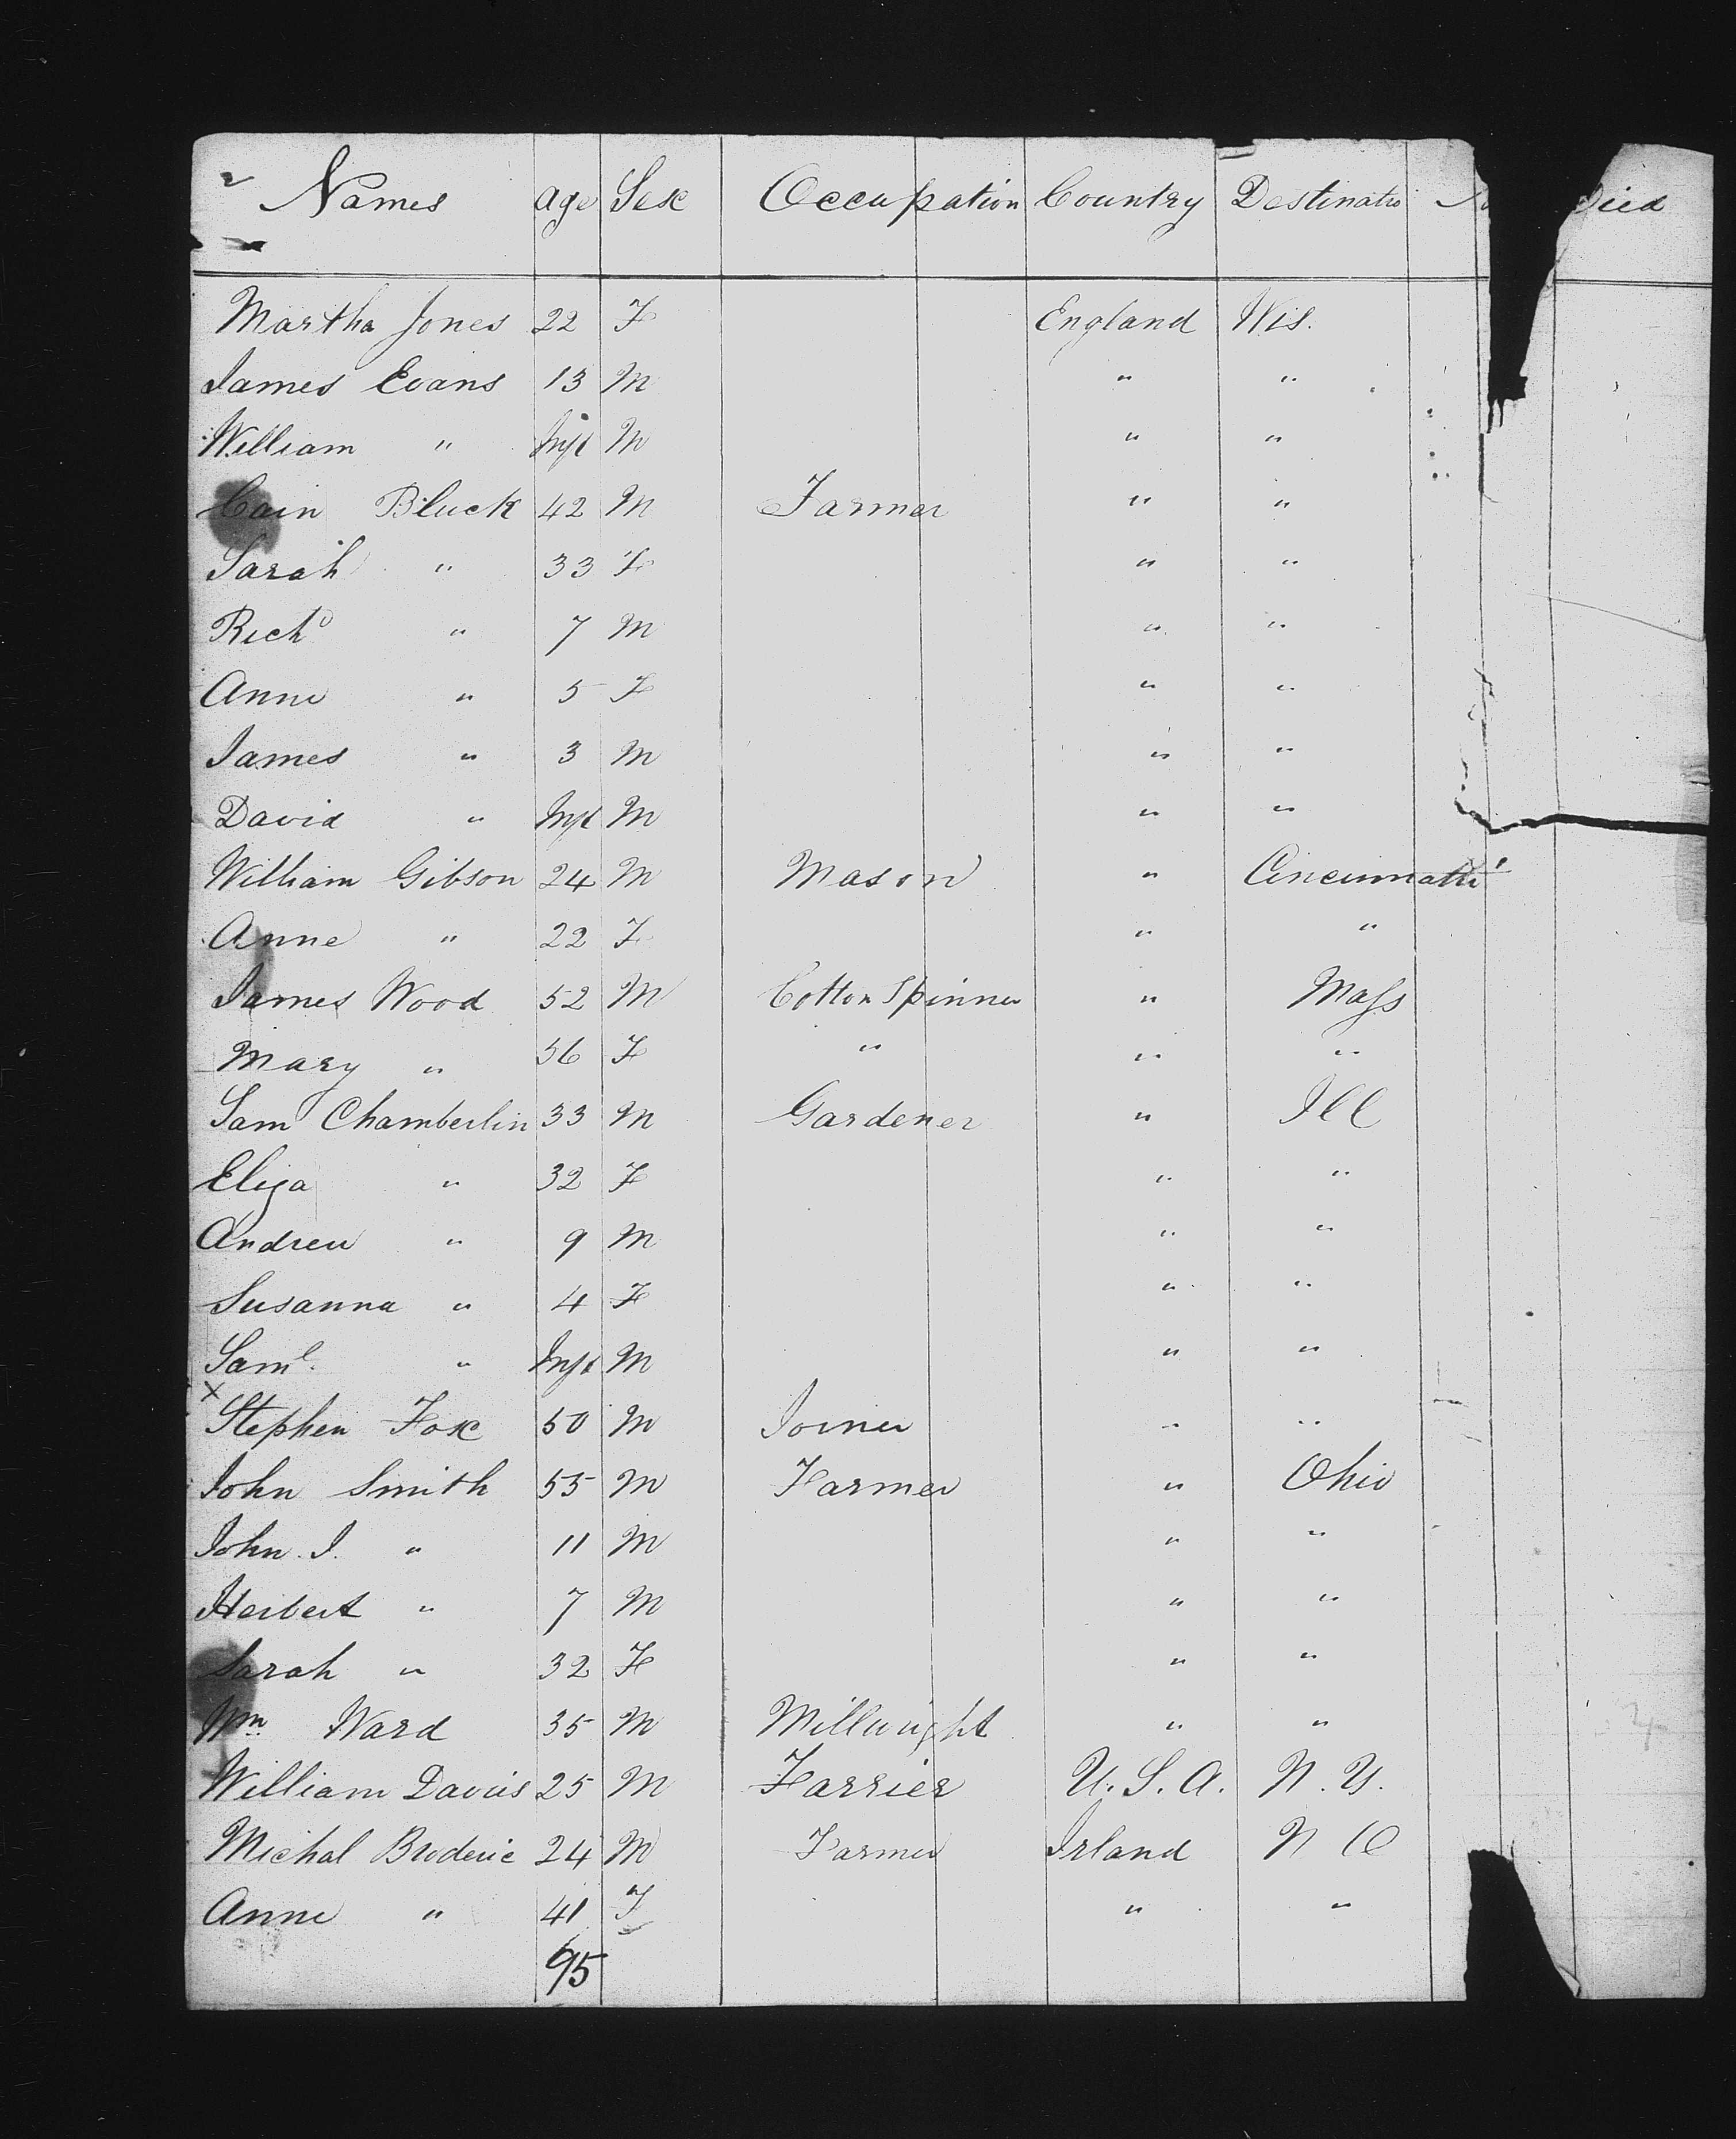 2 Names age Sex Occupation Country Destinatio Died
Martha Jones 22 F England Wis.
James Evans 13 M " "
William " Inft M " "
Cain Bluck 42 M Farmer " "
Sarah " 33 F " "
Richd " 7 M " "
Anne " 5 F " "
James " 3 M " "
David " Inft M " "
William Gibson 24 M Mason " Cincinnatti
Anne " 22 F " "
James Wood 52 M Cotton Spinner " Mass
Mary " 56 F " " "
Sam Chamberlin 33 M Gardener " Ill
Eliza " 32 F " "
Andrew " 9 M " "
Susanna " 4 F " "
Saml. " Inft M " "
x Stephen Fox 50 M Joiner " "
John Smith 55 M Farmer " Ohio
John J. " 11 M " "
Herbert " 7 M " "
Sarah " 32 F " "
Wm Ward 35 M Millwright " "
William Davis 25 M Farrier U. S. A. N. Y.
Michal Broderic 24 M Farmer Irland N
Anne " 41 F " "
95